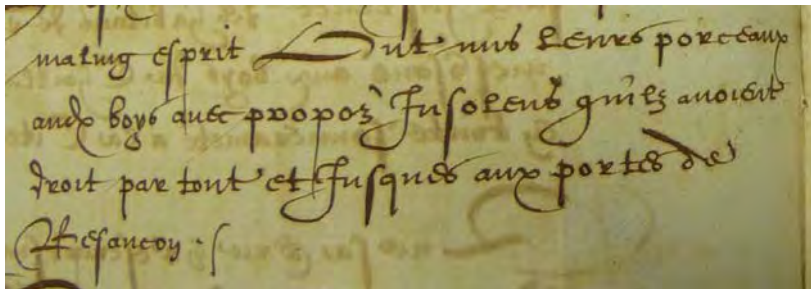 maling esprit Ont mis leurs porceaux
audx boys avec propoz Insolens qu'ilz avoient
droit par tout et Jusques aux portes de
Besancon .